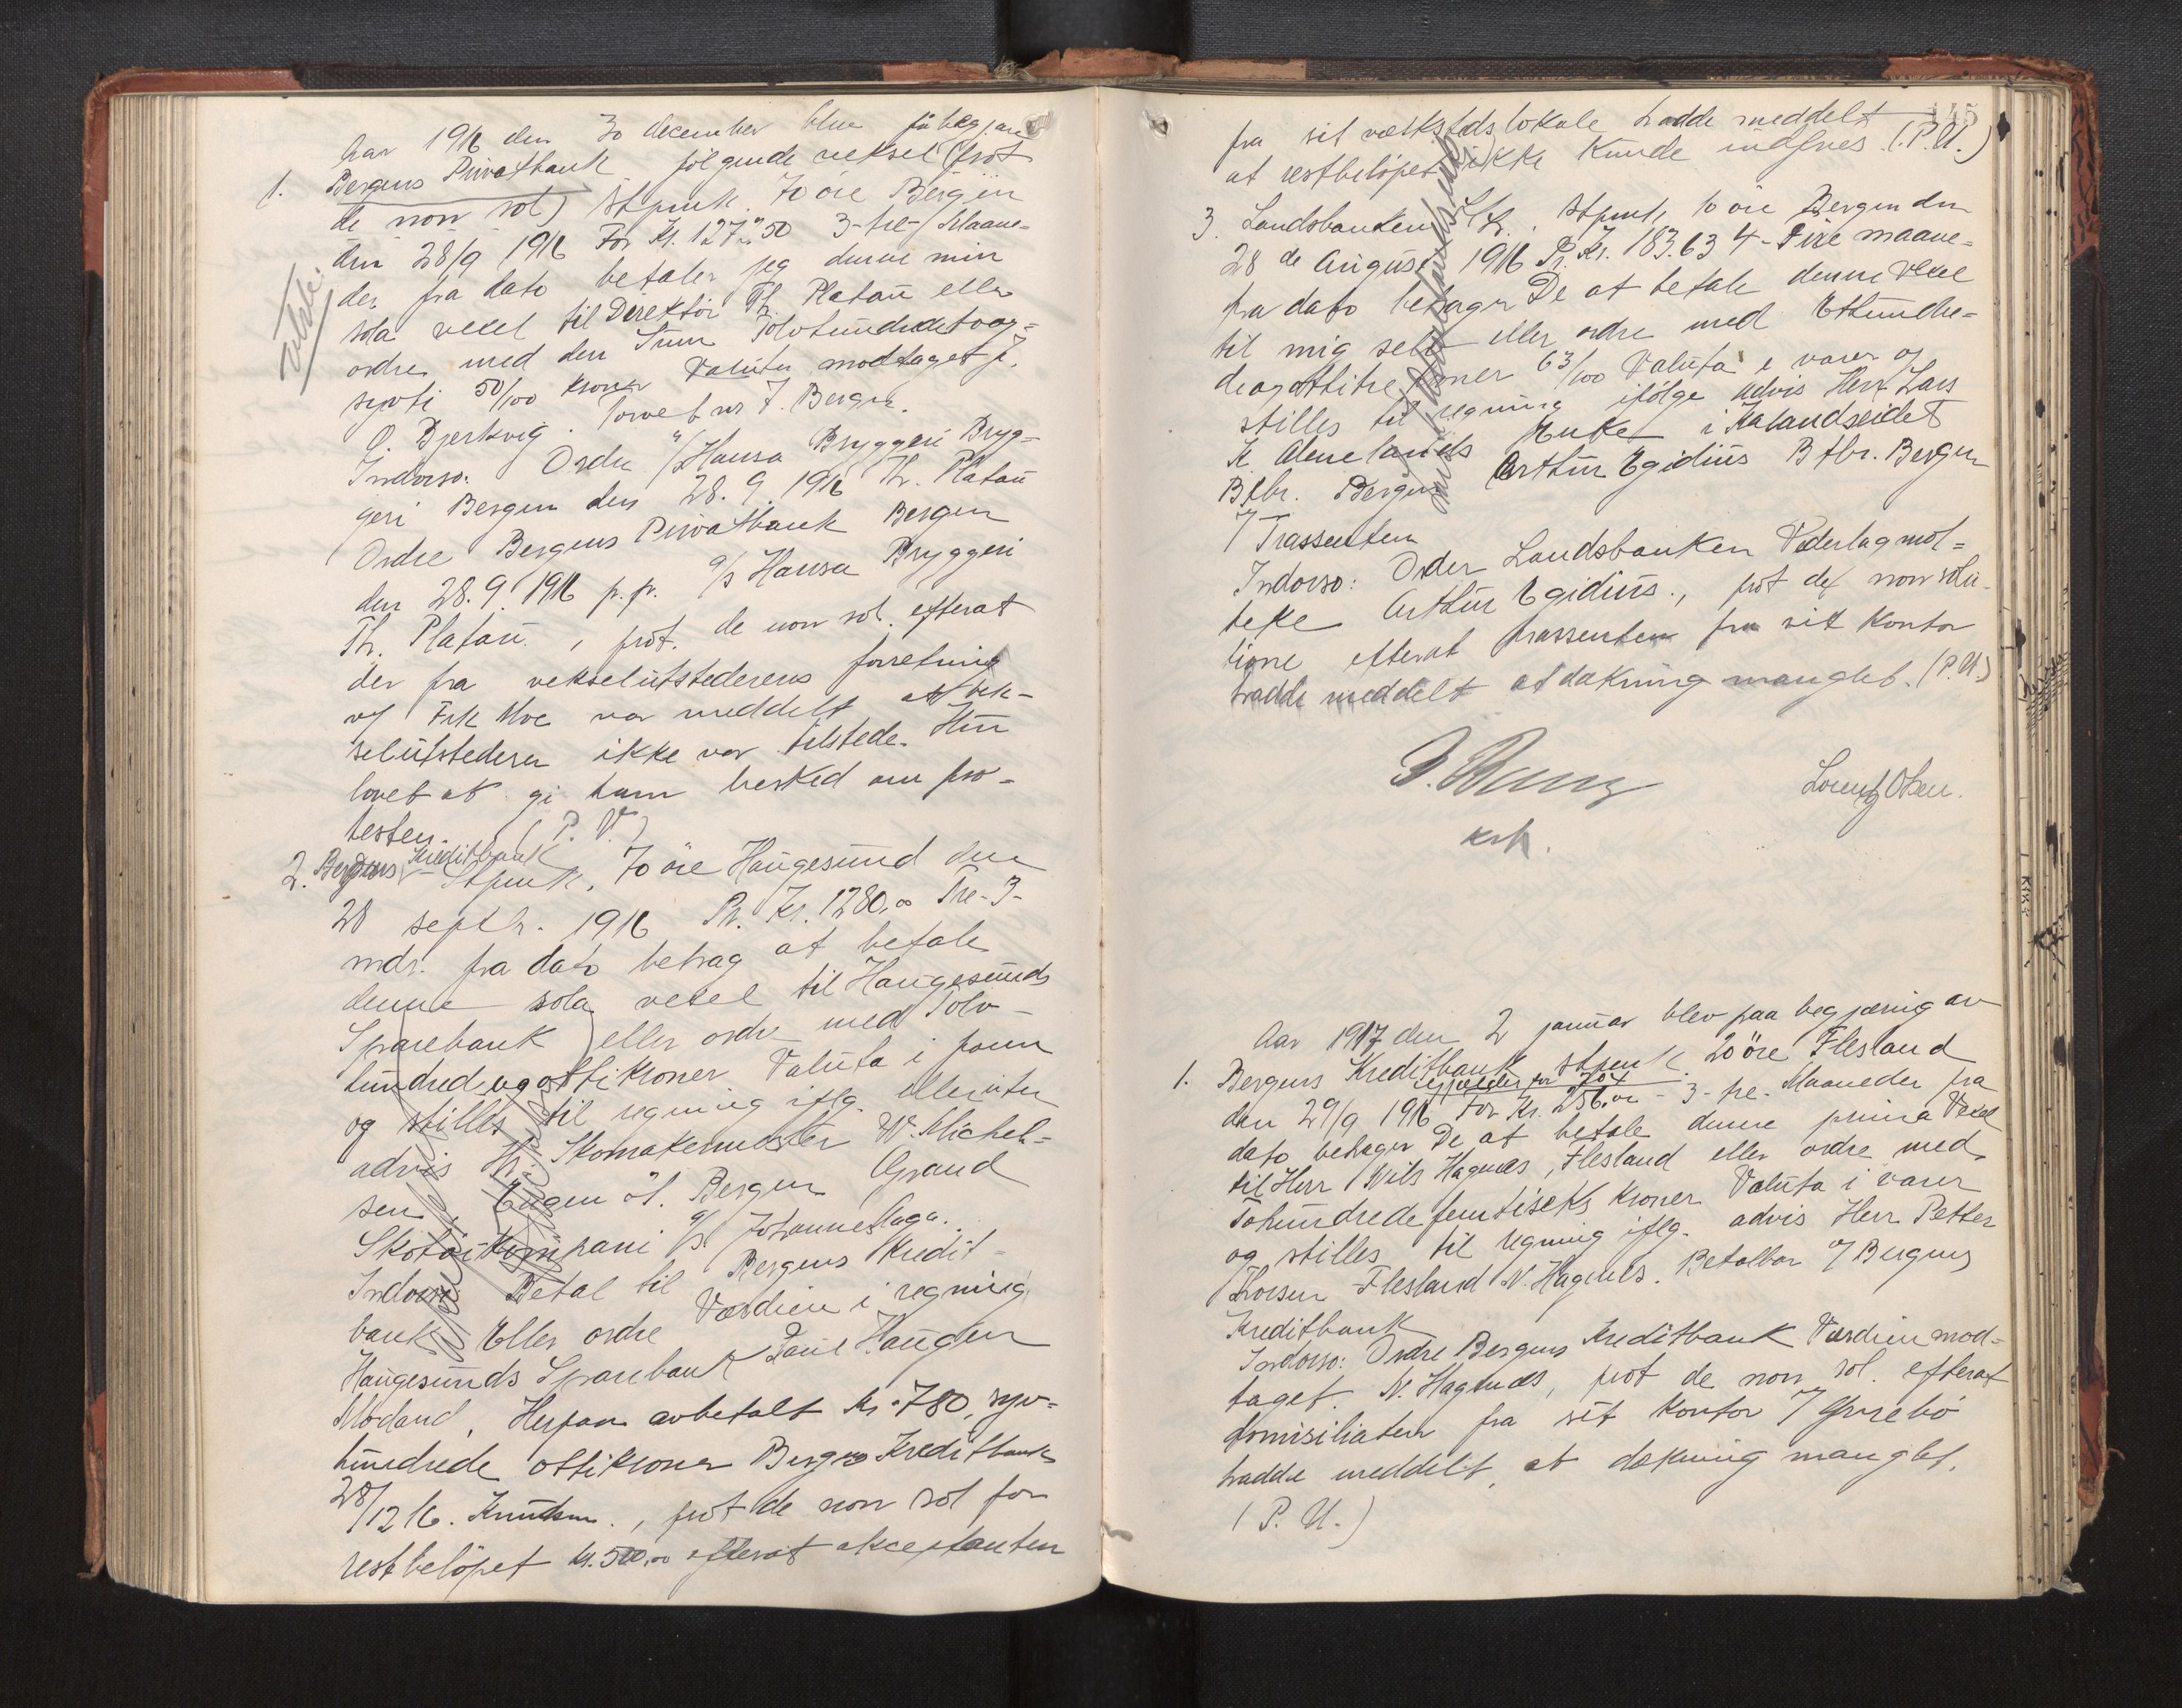 Aar 1916 den 30 december blev på begjæri
1. Bergens Privatbank følgende veksel (prot
de non sol) Stpmk. 70 øre Bergen
den 28/9 1916 For Kr. 1270,50 3-tre-Maane-
der fra dato betaler jeg denne min
sola vexel til Direktör Th. Platou eller
ordre med den Sum Tolvhundredetoog-
sytti 50/100 Kroner Valuta modtaget
O. Bjerkvig. Bergen.
Indorso: Ordre A/S Hansa Bryggeri Bryg-
geri Bergen den 28.9.1916 Th. Platou
Ordre Bergens Privatbank Bergen
den 28.9.1916 p.p. A/S Hansa Bryggeri
Th. Platou, prot. de non sol. efterat
der fra vekselutstederens forretning
v/ Frk Moe var meddelt at vek-
selutstederen ikke var tilstede. Hun
lovet at gi ham besked om pro-
testen. (P. U.)
2. Bergens Kreditbank Stpmk. 70 öre Haugesund den
28 septbr. 1916 Pr. Kr. 1280,00 Tre-3-
mdr. fra dato behag at betale
denne sola vexel til Haugesunds
Sparebank eller ordre med Tolv-
hundredeogottikroner Valuta i
og stilles til regning iflg. eller uten
advis Hr. Skomakermester W. Michel-
sen, Engen 21. Bergen Grand
Skotøikompani A/S Johannes Aaga.
Indorso: Betal til Bergens Kredit-
bank Eller ordre Værdien i regning
Haugesunds Sparebank Haugen
Herpaa avbetalt Kr. 780, syv-
hundrede ottikroner Bergens Kreditbank
28/12 16. Knudsen., prot de non sol for
restbelöpet Kr. 500,00 efterat akceptanten
145
fra sit verkstedslokale hadde meddelt
at restbelöpet ikke kunde indfries. (P. U.)
3. Landsbanken Stpmk. 10 öre Bergen den
28 de August 1916 Pr. Kr. 183.63 4-Fire maane-
fra dato behager De at betale denne Vexel
til mig selv eller ordre med Ethundre-
deogottitre Kroner 63/100 Valuta i varer og
stilles til regning ifölge advis Herr Lars
K. Alvelands Enke i Kalandseidet
Btbr. Bergen Arthur Egidius Btbr. Bergen
Trassenten
Indorso: Order Landsbanken Vederlag mot-
Arthur Egidius., prot de non solu-
tione efterat trassenten fra sit Kontor
hadde meddelt at dækning manglet. (P.U.)
Lorentz Olsen.
Aar 1917 den 2 januar blev paa begjæring av
1. Bergens Kreditbank stpmk. 20 öre Flesland
den 29/9 1916 For Kr. 256.00 - 3-tre-Maaneder fra
dato behager De at betale denne prima Vexel
til Herr Nils Hagenæs, Flesland eller ordre med
Tohundredefemtiseks Kroner Valuta i varer
og stilles til regning iflg. advis Herr Petter
Thorsen Flesland N. Hagenæs. Betalbar v/ Bergens
Kreditbank
Indorso: Ordre Bergens Kreditbank Værdien mod-
taget. N. Hagenæs, prot de non sol. efterat
domisiliaten fra sit Kontor v/ Gyrebö
hadde meddelt, at dækning manglet.
(P. U.)